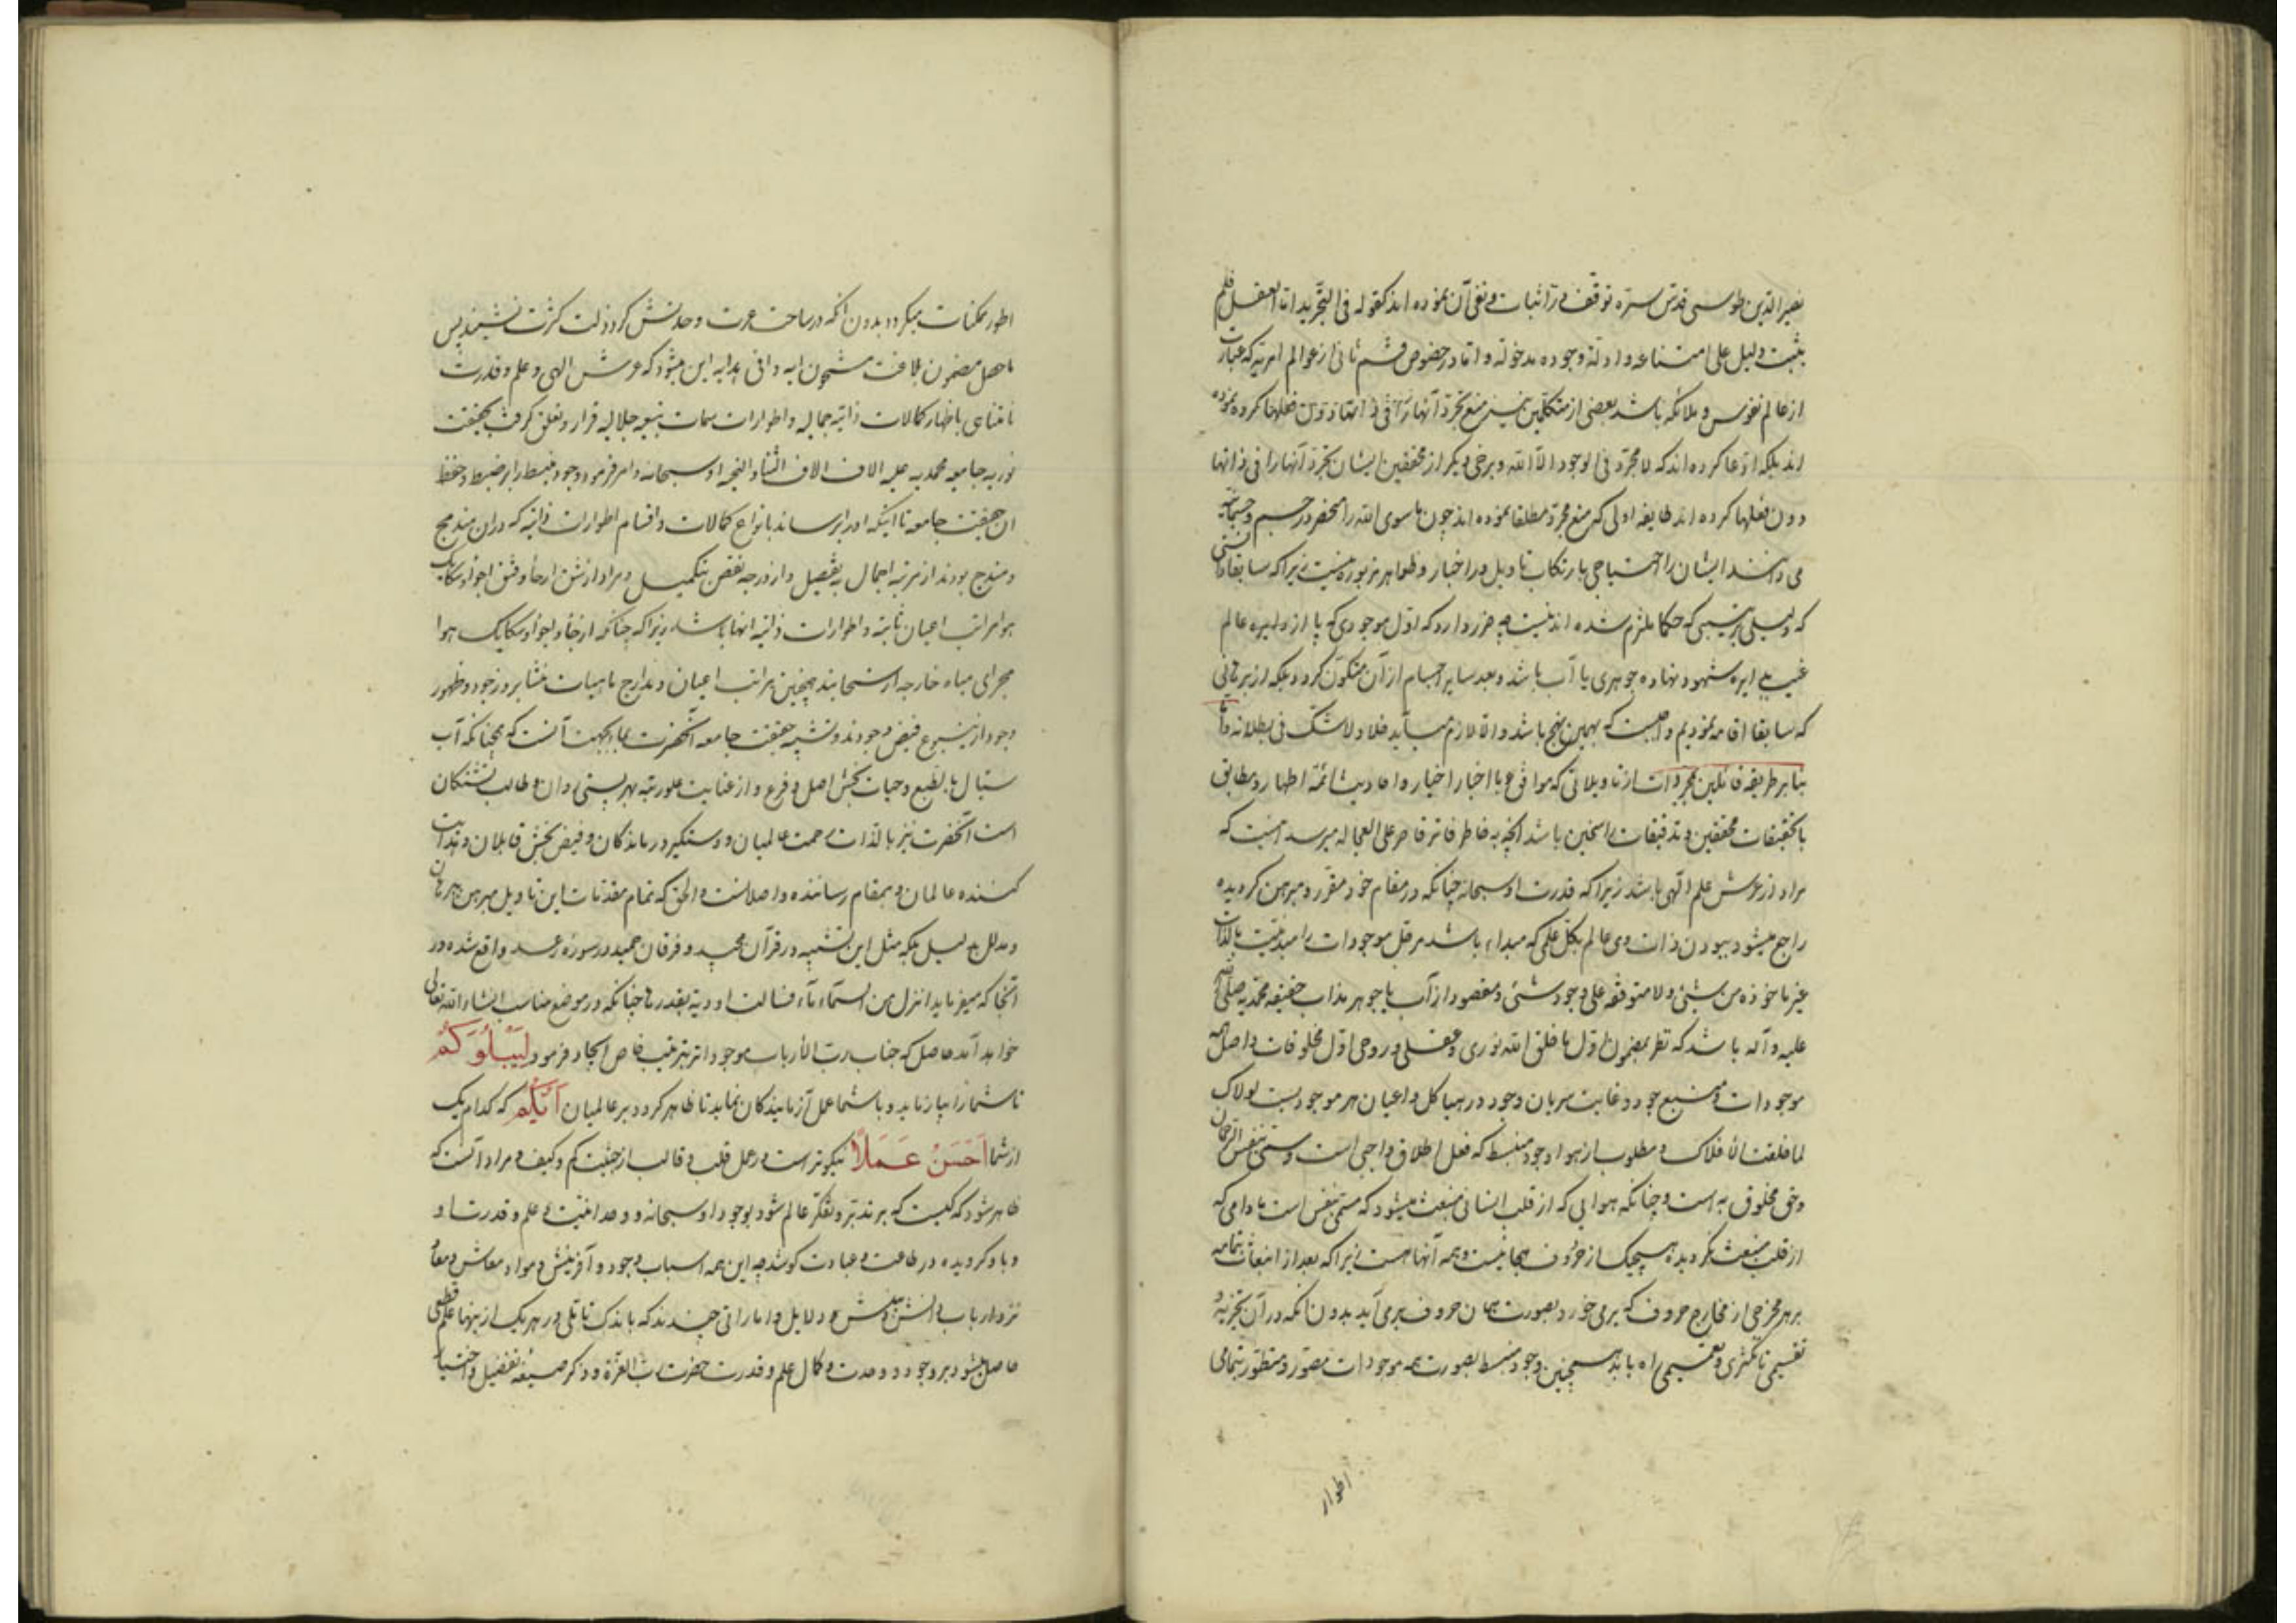 نصیر الدین طوسی قدس سره توقف در اثبات و نفی آن نموده اند کقوله فی التجرید اما العقل فلم
یثبت دلیل علی امتناعه و ادلة وجوده مدخولة و اما در خصوص قسم ثانی از عوالم امریه که عبارت
از عالم نفوس و ملائکه باشد بعضی از متکلمین نیز منع تجرد آنها را فی ذاتها و فعلها کرده نموده
اند بلکه ادعا کرده اند که لا مجرد فی الوجود الا الله و برخی دیگر از محققین ایشان تجرد آنها را فی ذاتها
دون فعلها کرده اند طایفه اولی که منع مجرد مطلقا نموده اند چون ما سوی الله را منحصر در جسم و جسمانیه
می دانند ایشان را احتیاجی بارتکاب تاویل در اخبار و ظواهر مزبوره نیست زیرا که سابقا دانستی
که دلیلی بر ترتیبی که حکما ملتزم شده اند نیست چه ضرر دارد که اول موجودی که پا از دایره عالم
غیب بدایره شهود نهاده جوهری یا آب باشد و بعد سایر اجسام از آن متکون گردد بلکه از برهانی
که سابقا اقامه نمودیم واجبست که بهمین نهج باشد و الا لازم میآید خلاء و لا شک فی بطلانه و اما
بنا بر طریقه قائلین بمجردات از تاویلاتی که موافق با اخبار اخیار و احادیث ائمه اطهار و مطابق
با تحقیقات محققین و تدقیقات راسخین باشد آنچه به خاطر فاتر قاصر علی العجاله میرسد اینست که
مراد از عرش علم الهی باشد زیرا که قدرت او سبحانه چنانکه در مقام خود مقرر و مبرهن گردیده
راجع میشود ببودن ذات وی عالم بکل علمی که مبداء باشد مر کل موجودات را مبدئیت بالذات
غیر ماخوذه من شیئ ولا متوقفه علی وجود شیئ و مقصود از آب یا جوهر مذاب حقیقه محمدیه صلی الله
علیه و آله باشد که نظر بمضمون اول ما خلق الله نوری و عقلی و روحی اول مخلوقات و اصل همه
موجودات و منبع جود و غایت سریان وجود در هیاکل و اعیان هر موجودیست لولاک
لما خلقت الافلاک و مطلوب از هوا وجود منبسط که فعل اطلاق واجبی است و مسمی بنفس الرحمان
و حق مخلوق به است و چنانکه هوایی که از قلب انسانی منبعث میشود که مسمی بنفس است مادامی که
از قلب منبعث نگردیده هیچیک از حروف هجا نیست و همه آنها هست زیرا که بعد از انبعاث بتمامه
بر هر مخرجی از مخارج حروف که برمی خورد بصورت همان حروف برمی آید بدون آنکه در آن تجزیه و
تقسیمی تا تکثری و تقسیمی راه یابد همچنین وجود منبسط بصورت همه موجودات متصور و متطور بتمامی
اطوار
اطور ممکنات میکردد بدون آنکه در ساحت عزت وحدتش کرد ذلت کثرت نشیند پس
ماحصل مضمون بلاغت مشحون ایه وافی هدایه این میشود که عرش الهی و علم و قدرت
نامتناهی باظهار کمالات ذاتیه جمالیه و اطوارات سمات بنیعه جلالیه قرار و تعلق گرفت بحقیقت
نوریه جامعه محمدیه علیه الاف الاف الثناء و التحیه او سبحانه و امر فرمود وجود منبسط را بر ضبط و حفظ
ان حقیقت جامعه تا اینکه او را برساند بانواع کمالات و اقسام اطوارات ذاتیه که در ان مندمج
و مندرج بودند از مرتبه اجمال به تفصیل و از درجه نقص بتکمیل و مراد از شق ارجاء و فتق اجواء و سکایک
هوا مراتب اعیان ثابته و اطوارات ذاتیه انها باشد زیرا که چنانکه ارجاء و اجواء و سکایک هوا
مجرای میاه خارجه از سحابند همچنین مراتب اعیان و مدارج ماهیات منشا بروز جود و ظهور
وجود از ینبوع فیض وجودند و تشبیه حقیقت جامعه آنحضرت بماء بجهت آنست که همچنانکه آب
سیال بالطبع و حیات بخش اصل و فرع و از عنایت علو رتبه بهر پستی روان و طالب تشنگان
است آنحضرت نیز بالذات رحمت عالمیان و دستگیر درماندگان و فیض بخش قابلان و هدایت
کننده عالمان و بمقام رساننده واصلانست و الحق که تمام مقدمات این تاویل مبرهن ببرهان
و مدلل بدلیل بلکه مثل این تشبیه در قرآن مجید و فرقان حمید در سوره رعد واقع شده در
آنجا که میفرماید انزل من السماء ماء فسالت اودیة بقدرها چنانکه در موضع مناسب انشاء الله تعالی
خواهد آمد حاصل که جناب رب الارباب موجودات را بترتیب خاص ایجاد فرمود لِیَبْلُوَکُمْ
تا شما را بیازماید و با شما عمل آزمایندگان نماید تا ظاهر کردد بر عالمیان اَیُّکُمْ که کدام یک
از شما اَحْسَنُ عَمَلاً نیکوتر است در عمل قلب و قالب از حیثیت کم و کیف و مراد آنست که
ظاهر شود که کیست که بر تدبر و تفکر عالم شود بوجود او سبحانه و وحدانیت و علم و قدرت او
و باو گرویده در طاعت و عبادت کوشد چه این همه اسباب وجود و آفرینش و مواد معاش و معاد
نزد ارباب دانش و بینش دلایل و اماراتی چندند که باندک تاملی در هر یک از ینها علم قطعی
حاصل میشود بر وجود و وحدت و کمال علم و قدرت حضرت رب العزة و ذکر صیغه تفضیل و اختیار